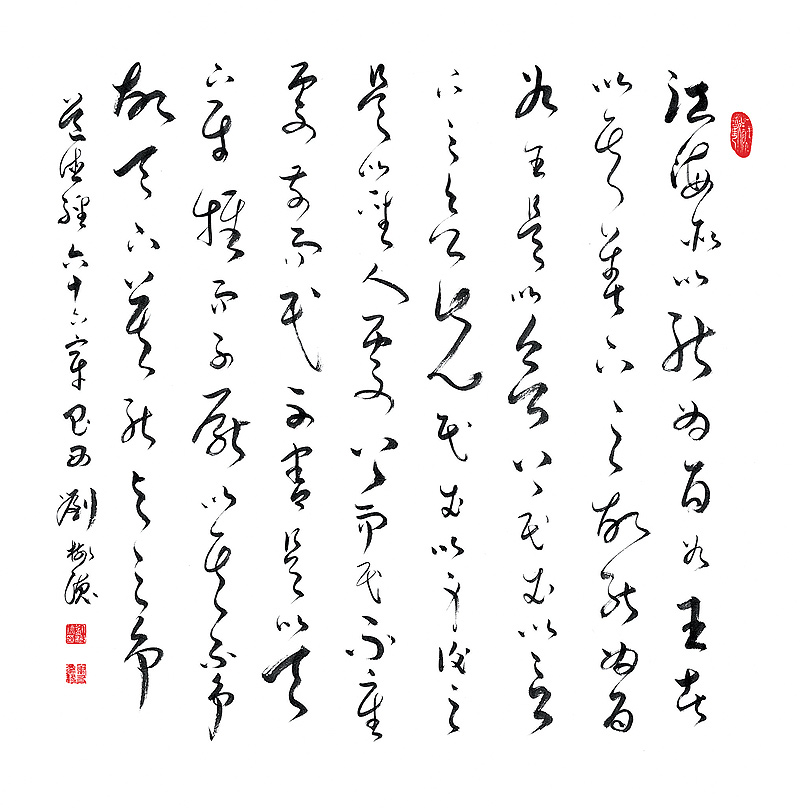 江海所以能為百谷王者
以其善下之故能為百
谷王是以欲上民必以言
下之欲先民必以身後之
是以聖人處上而民不重
處前而民不害是以天
下樂推而不厭以其不爭
故天下莫能與之爭
道德經六十六章 劉